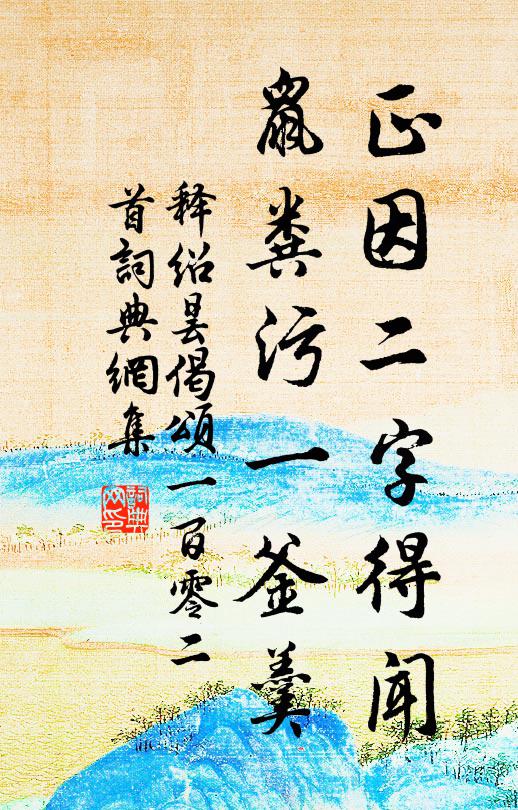 正因二字得闻
鼠粪污一釜羹
释绍昙偈颂一百零二
首詞典網集
詞典网印